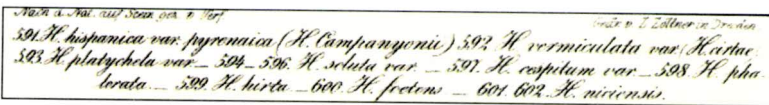 Nach d. Nat. auf Stein gez. v. Verf. Gedr. v. I. Zöllner in Dresden
591. H. hispanica var. pyrenaica (H. Campanyonii) 592. H. vermiculata var. (H. cirtae
593. H. platychela var. _ 594-596. H. soluta var. _ 597. H. cespitum var. _ 598. H. pha-
lerata. _ 599. H. hirta. _ 600. H. foetens _ 601. 602. H. niciensis.